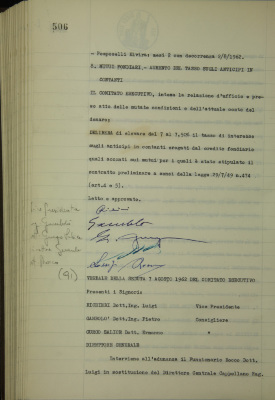 506
- Pomponelli Elvira: mesi 2 con decorrenza 9/8/1962.
5. MUTUI FONDIARI.- AUMENTO DEL TASSO SUGLI ANTICIPI IN
CONTANTI
IL COMITATO ESECUTIVO, intesa la relazione d'ufficio e pre-
so atto delle mutate condizioni e dell'attuale costo del
denaro;
DELIBERA di elevare dal 3 al 3,50% il tasso di interesse
sugli anticipi in contanti erogati dal credito fondiario
quali acconti sui mutui per i quali è stato stipulato il
contratto preliminare a sensi della legge 29/7/49 n.474
(art.4 e 5).
Letto e approvato.
(91)
VERBALE DELLA SEDUTA 7 AGOSTO 1962 DEL COMITATO ESECUTIVO
Presenti i Signori:
Dott.Ing. Luigi Vice Presidente
Dott.Ing. Pietro Consigliere
CURCO Dott. "
DIRETTORE CENTRALE
Interviene all'adunanza il Funzionario Rocca Dott.
Luigi in sostituzione del Direttore Centrale Cappellano Rag.